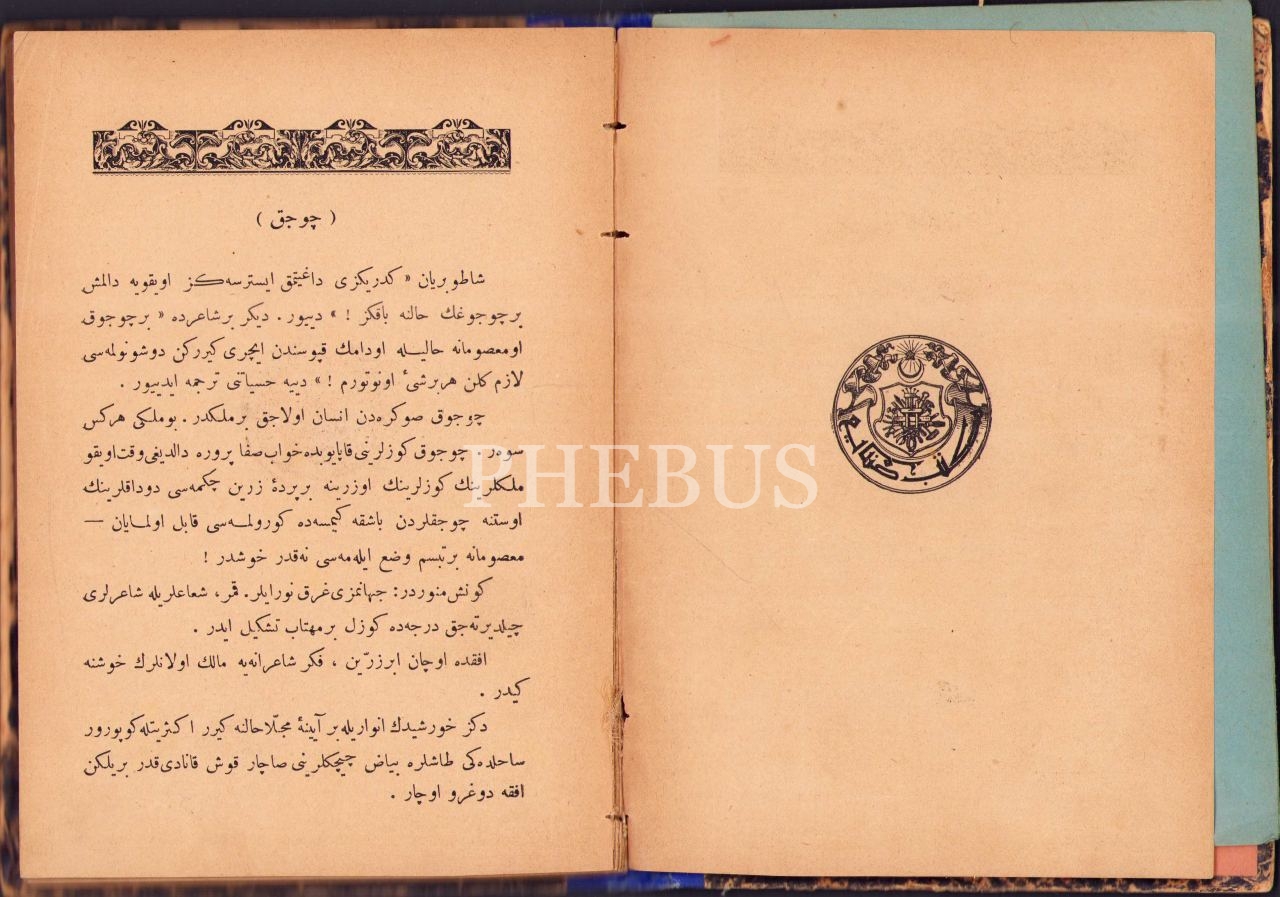 ( چوجق )
شاطوبریان « کدریکزی داغیتمق ایسترسه‌کز اویقویه دالمش
برچوجوغك حالنه باقکز ! » دییور . دیکر برشاعرده « برچوجوق
اومعصومانه حالیله اودامك قپوسندن ایچری کیررکن دوشونولمه‌سی
لازم کلن هربرشیٔ اونوتورم ! » دییه حسیاتنی ترجمه ایدییور .
چوجوق صوکره‌دن انسان اولاجق برملکدر . بوملکی هرکس
سوەر . چوجوق کوزلرینی قاپایوبده خواب صفا پروره دالدیغی وقت اویقو
ملکلرینك کوزلرینك اوزرینه برپردۀ زرین چکمه‌سی دوداقلرینك
اوستنه چوجقلردن باشقه کیمسه‌ده کورولمه‌سی قابل اولمایان —
معصومانه برتبسم وضع ایله‌مه‌سی نه‌قدر خوشدر !
کونش منوردر: جهانمزی غرق نورایلر. قمر، شعاعلریله شاعرلری
چیلدیرته‌جق درجه‌ده کوزل برمهتاب تشکیل ایدر .
افقده اوچان ابرزرّین ، فکر شاعرانه‌یه مالك اولانلرك خوشنه
کیدر .
دکز خورشیدك انواریله بر آیینۀ مجلّا حالنه کیرر اکثریتله کوپورور
ساحلده‌کی طاشلره بیاض چیچکلرینی صاچار قوش قانادی قدر بریلکن
افقه دوغرو اوچار .
PHEBUS